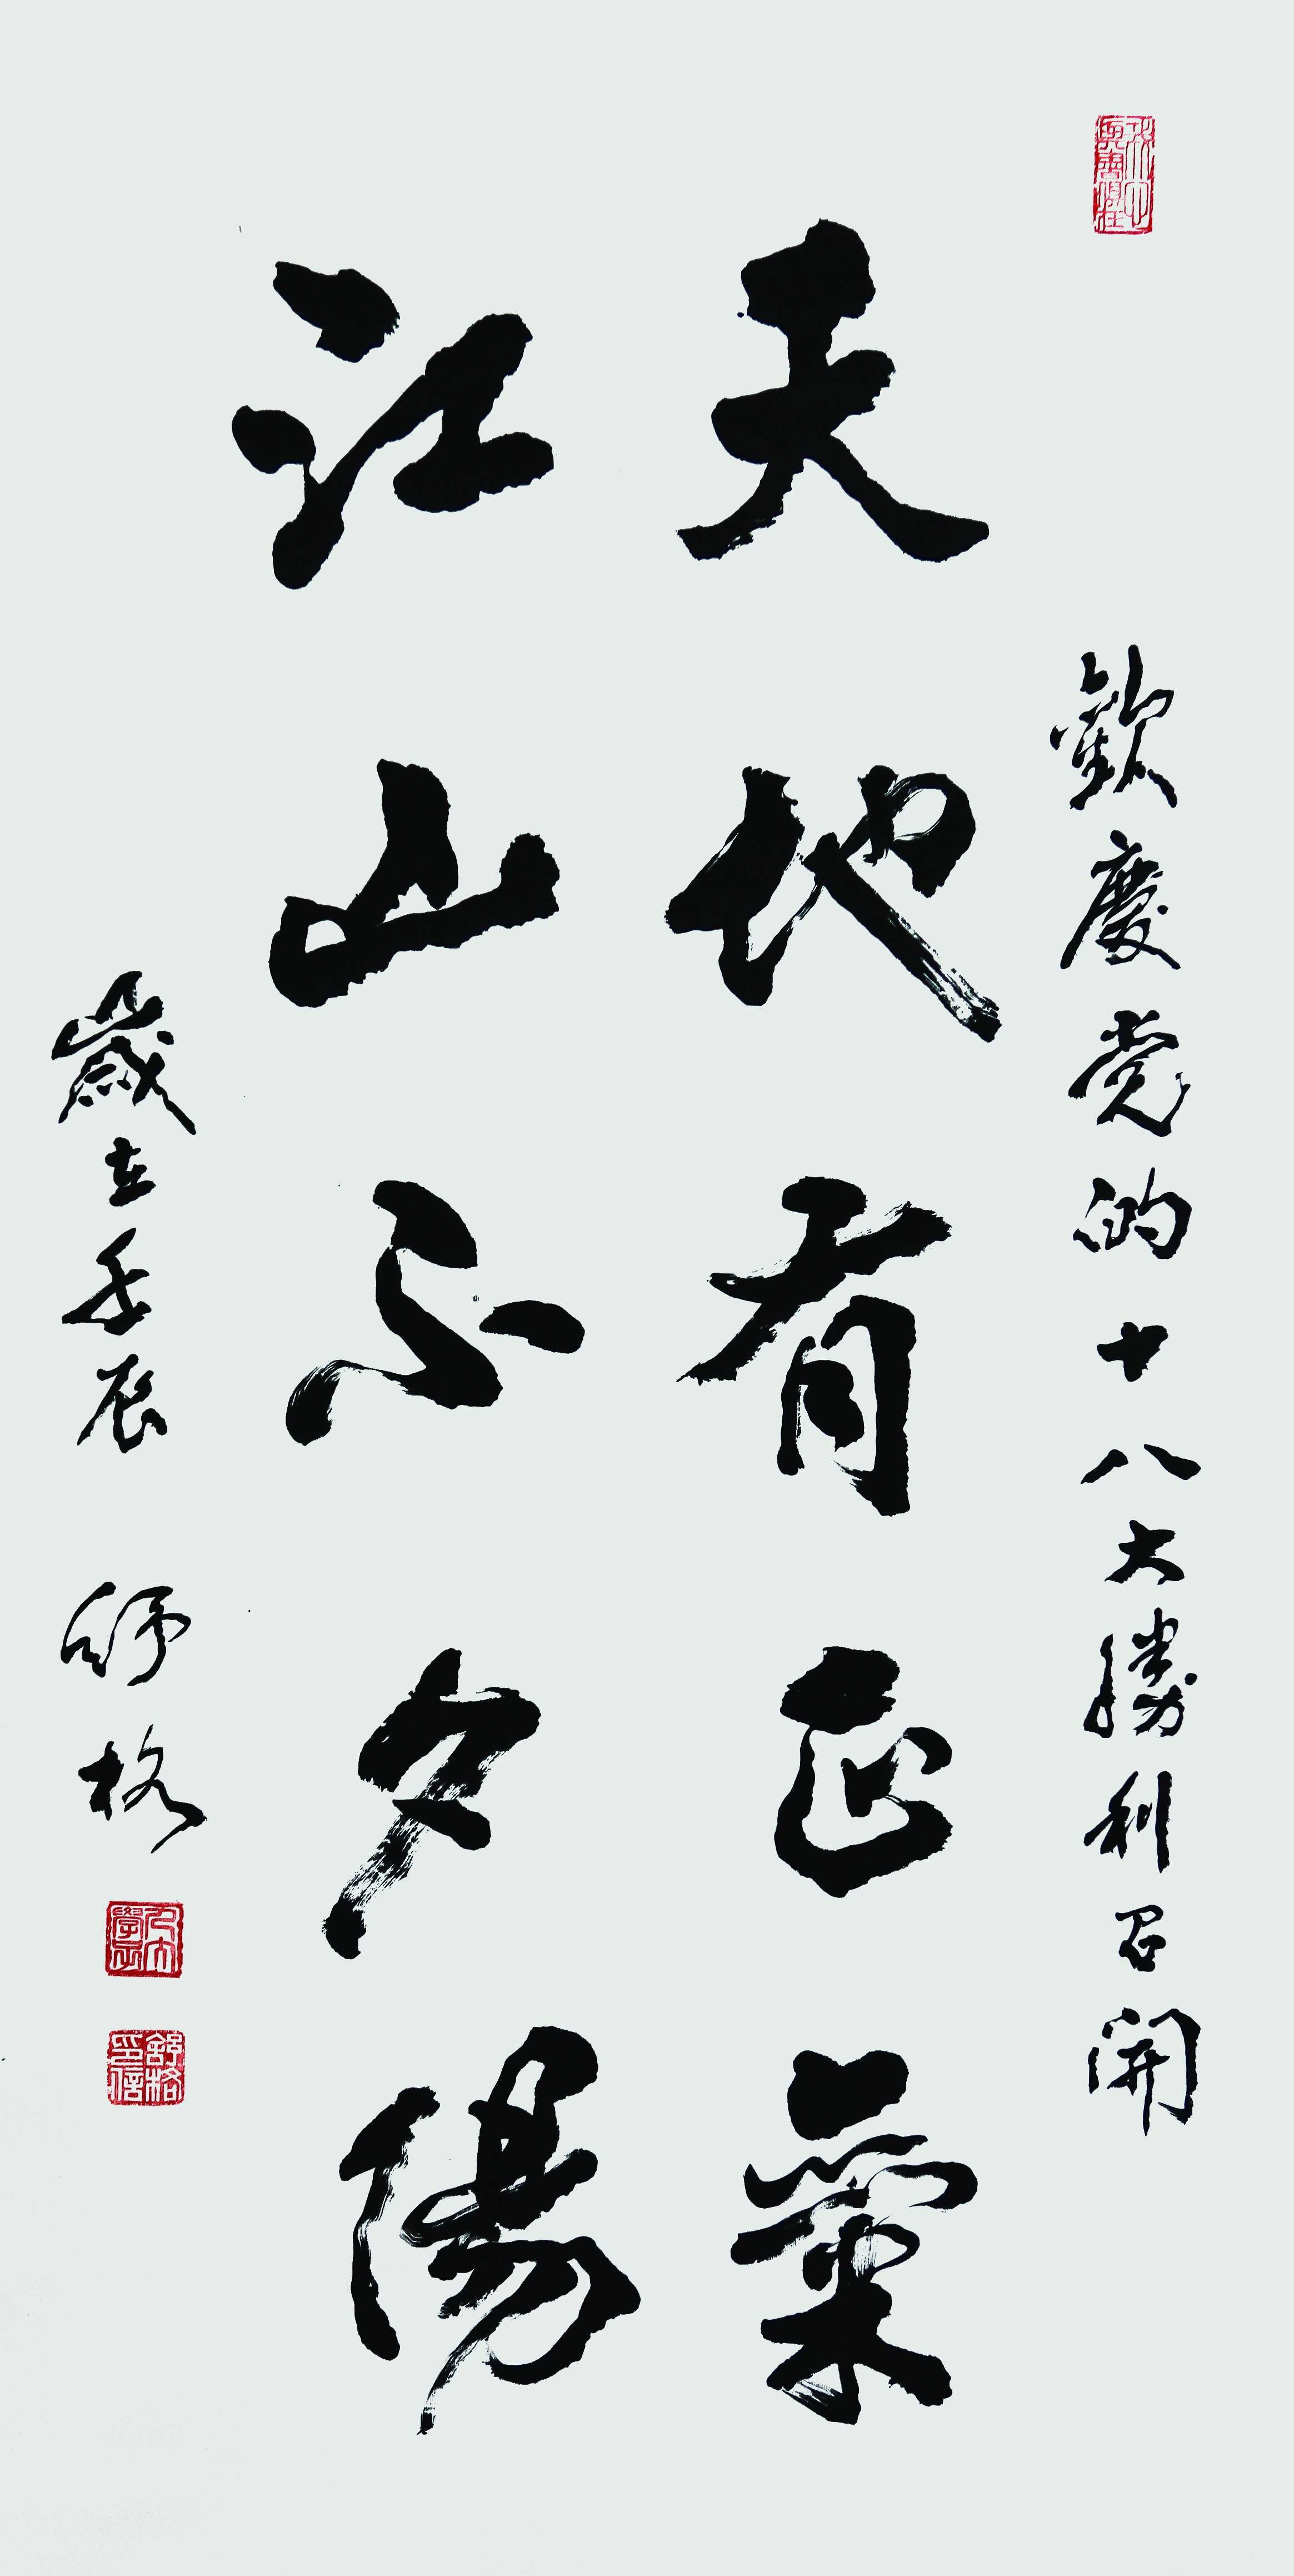 歡慶党的十八大勝利召開
天地有正氣
江山不夕陽
歲在壬辰 舒格
舒格印信